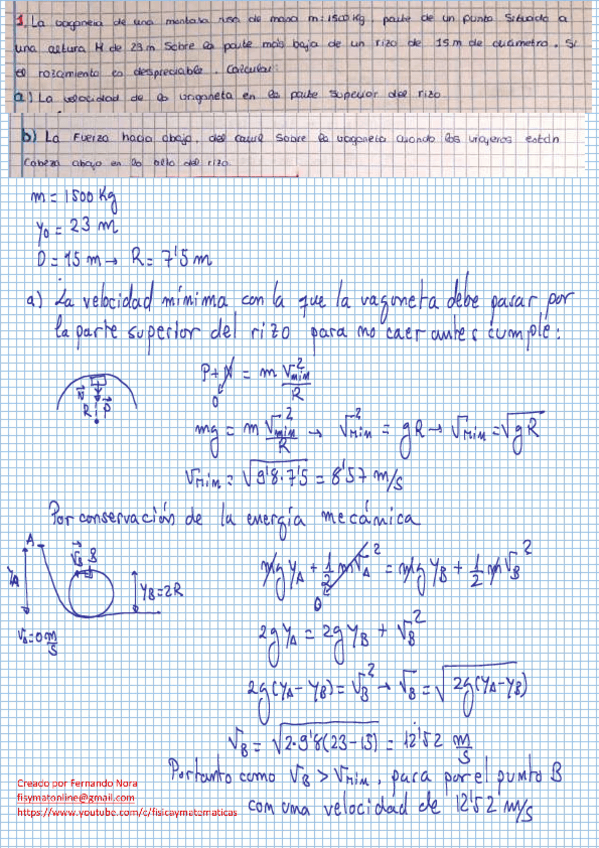 1. La vagoneta de una montaña rusa de masa m: 1500 Kg, parte de un punto situado a
una altura H de 23 m sobre la parte más baja de un rizo de 15 m de diámetro. Si
el rozamiento es despreciable. Calcular:
a) La velocidad de la vagoneta en la parte superior del rizo
b) La Fuerza hacia abajo, del carril sobre la vagoneta cuando los viajeros están
cabeza abajo en lo alto del rizo.
m = 1500 Kg
y₀ = 23 m
D = 15 m → R = 7'5 m
a) La velocidad mínima con la que la vagoneta debe pasar por
la parte superior del rizo para no caer antes cumple:
P + N = m v²min / R
0
N P
R
mg = m v²min / R → v²min = gR → vmin = √gR
vmin = √9'8·7'5 = 8'57 m/s
Por conservación de la energía mecánica
A
vB B
yA
yB = 2R
vA = 0 m/s
mgyA + 1/2 mvA² = mgyB + 1/2 mvB²
0
2gyA = 2gyB + vB²
2g(yA - yB) = vB² → vB = √2g(yA - yB)
vB = √2·9'8(23-15) = 12'52 m/s
Por tanto como vB > vmin, para por el punto B
con una velocidad de 12'52 m/s
Creado por Fernando Nora
fisymatonline@gmail.com
https://www.youtube.com/c/fisicaymatematicas